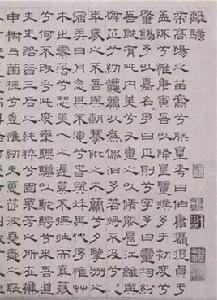 離騷
帝高陽之苗裔兮朕皇考曰伯庸攝提貞于
孟陬兮惟庚寅吾以降皇覽揆余于初度兮肇
錫余以嘉名名余曰正則兮字余曰靈均紛
吾既有此內美兮又重之以脩能扈江離與
辟芷兮紉秋蘭以為佩汩余若將不及兮恐
年歲之不吾與朝搴阰之木蘭兮夕攬洲之
宿莽日月忽其不淹兮春與秋其代序惟草
木之零落兮恐美人之遲暮不撫壯而棄穢
兮何不改乎此度乘騏驥以馳騁兮來吾道
夫先路昔三后之純粹兮固眾芳之所在雜
申椒與菌桂兮豈維紉夫蕙茝彼堯舜之耿